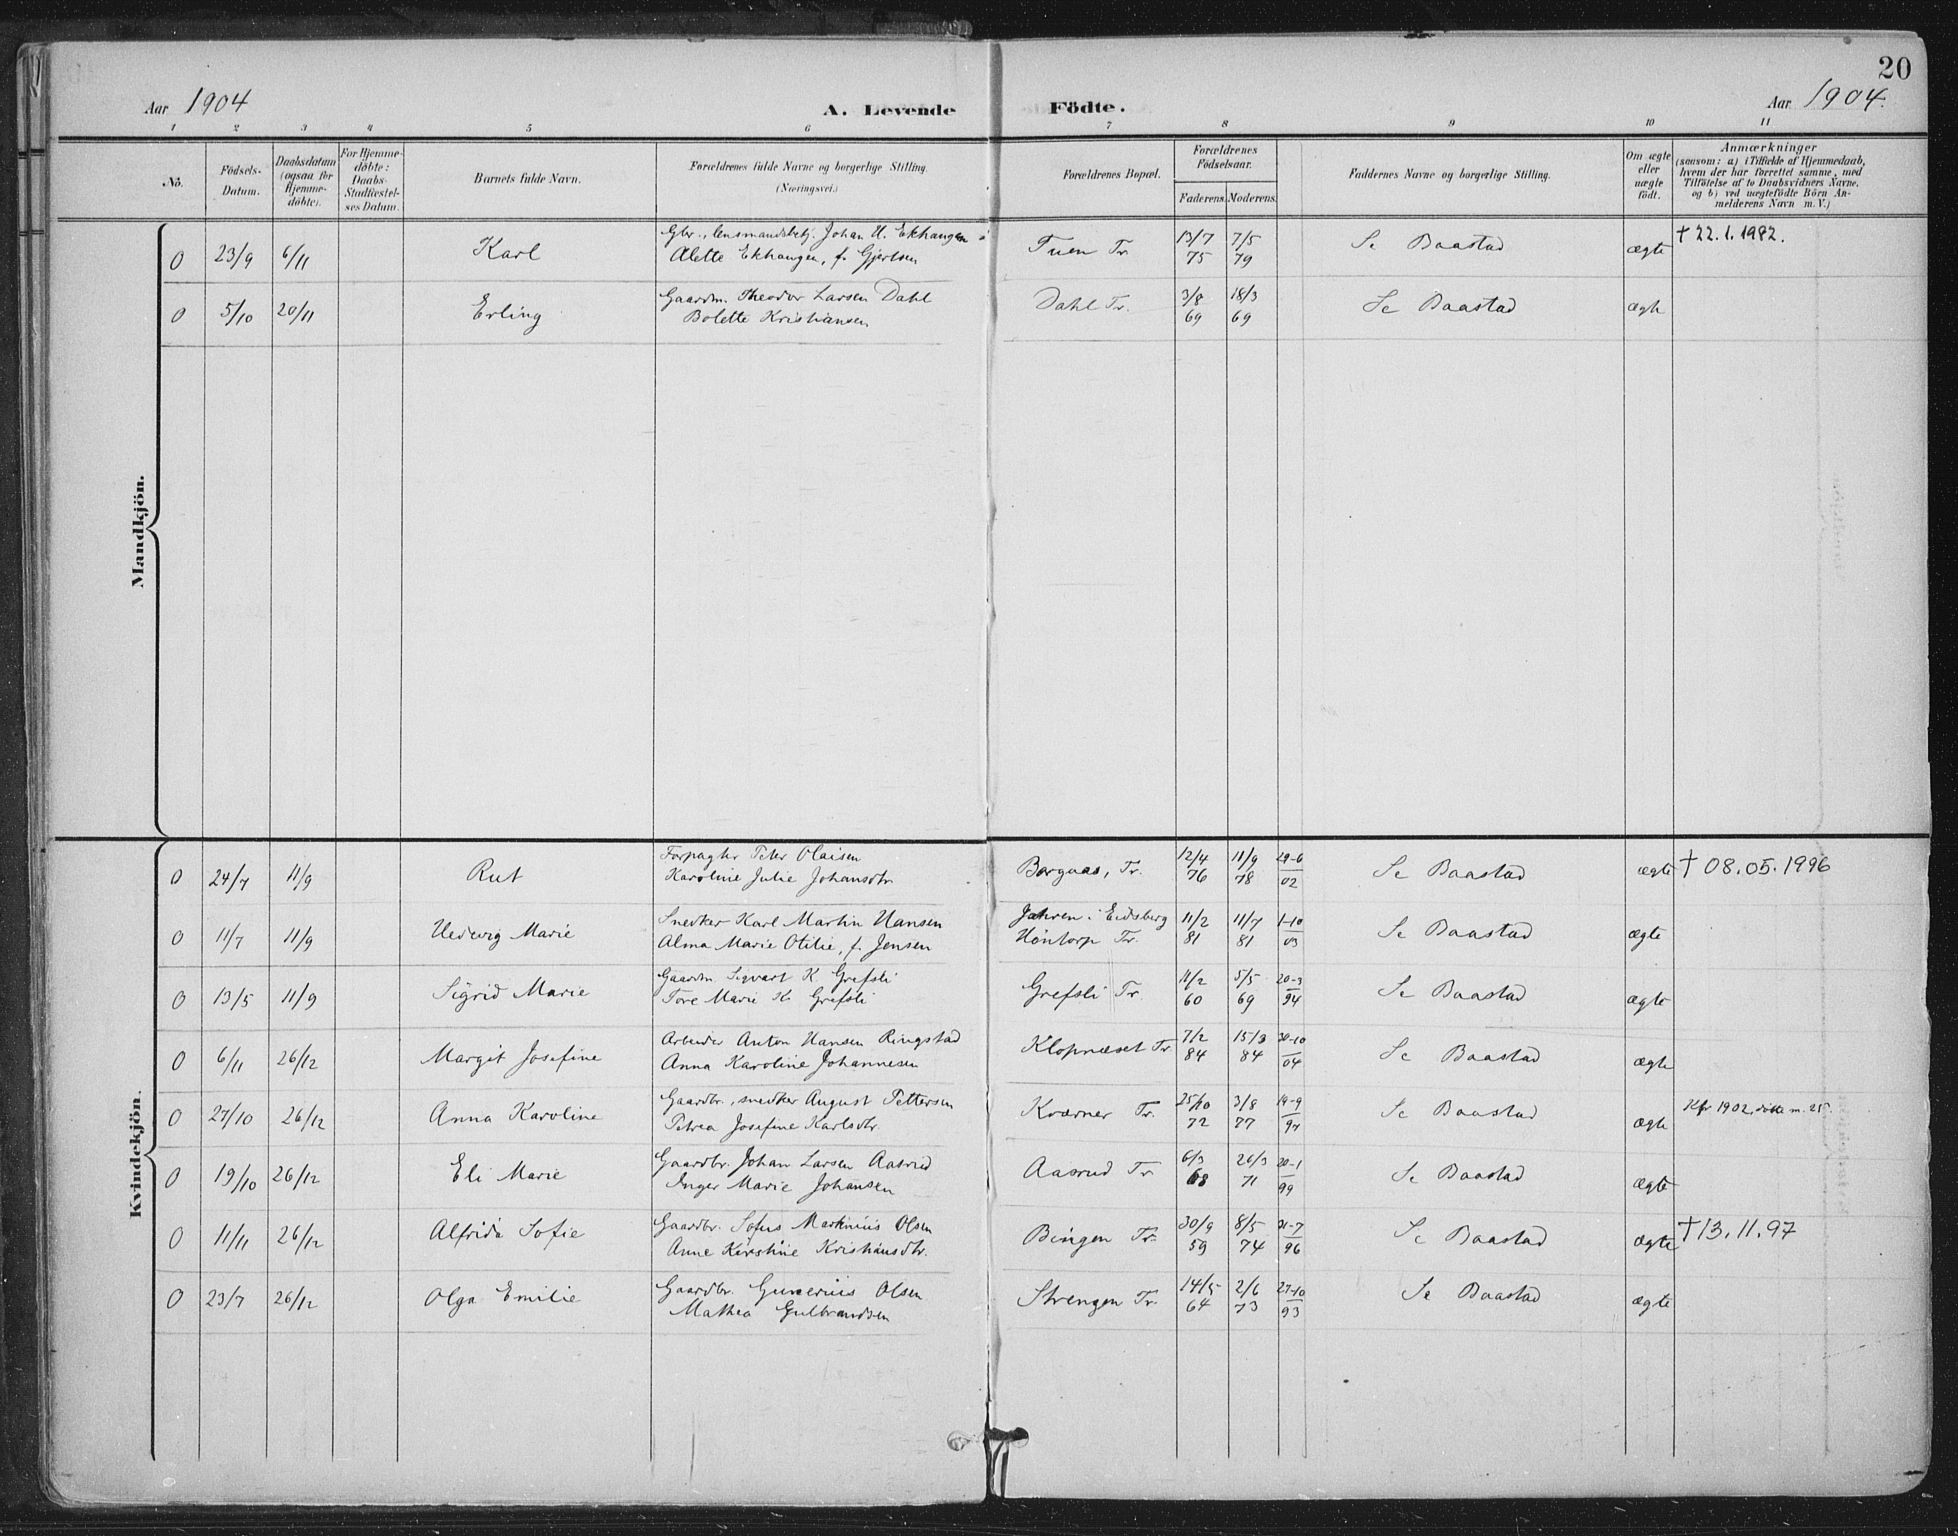 20
Aar 1904 A. Levende Födte. Aar 1904.
1 2 3 4 5 6 7 8 9 10 11
No. Födsels-Datum. Daabsdatum (ogsaa for Hjemme-döbte). For Hjemme-döbte: Daabs-Stadfæstel-ses Datum. Barnets fulde Navn. Forældrenes fulde Navne og borgerlige Stilling. (Næringsvei.) Forældrenes Bopæl. Forældrenes Födselsaar. Faderens. Moderens. Faddernes Navne og borgerlige Stilling. Om ægte eller uægte födt. Anmærkninger (saasom: a) i Tilfælde af Hjemmedaab, hvem der har forrettet samme, med Tilföielse af to Daabsvidners Navne, og b) ved uægtefödte Börn An-melderens Navn m. V.)
Mandkjön.
0 23/9 6/11 Karl Gbr., lensmandsbetj. Johan H. Ekhaugen Tuen Tr. 13/7 75 7/5 79 Se Baastad ægte † 22.1.1982.
Alette Ekhaugen, f. Gjertsen
0 5/10 20/11 Erling Gaardm. Theodor Larsen Dahl Dahl Tr. 3/8 69 18/3 69 Se Baastad ægte
Bolette Kristiansen
Kvindekjön.
0 24/7 11/9 Rut Forpagter Peter Olaisen Borgaas, Tr. 12/4 76 11/9 78 29-6 02 Se Baastad ægte † 08.05.1996
Karoline Julie Johansdtr.
0 11/7 11/9 Hedevig Marie Snedker Karl Martin Hansen Jahren i Eidsberg 11/2 81 11/7 81 1-10 03 Se Baastad ægte
Alma Marie Otilie, f. Jensen Höntorp Tr.
0 13/5 11/9 Sigrid Marie Gaardm. Sigvart K Grefsli Grefsli Tr. 11/2 60 5/5 69 20-3 94 Se Baastad ægte
Tore Marie K. Grefsli
0 6/11 26/12 Margit Josefine Arbeider Anton Hansen Ringstad Klopnæset Tr. 7/2 84 15/3 84 30-10 04 Se Baastad ægte
Anna Karoline Johannesen
0 27/10 26/12 Anna Karoline Gaardbr., snedker August Pettersen Kværner Tr. 25/10 72 3/8 77 19-9 97 Se Baastad ægte Kfr 1902, dåbte m. 25
Petrea Josefine Karlsdtr.
0 19/10 26/12 Eli Marie Gaardbr. Johan Larsen Aasrud Aasrud Tr 6/3 68 26/3 71 20-1 99 Se Baastad ægte
Inger Marie Johansen
0 11/11 26/12 Alfrida Sofie Gaardbr. Sofus Martinius Olsen Bingen Tr. 30/9 59 8/5 74 21-7 96 Se Baastad ægte † 13.11.97
Anne Kirstine Kristiansdtr.
0 23/7 26/12 Olga Emilie Gaardbr. Gunerius Olsen Strengen Tr. 14/5 64 2/6 73 27-10 93 Se Baastad ægte
Mathea Gulbrandsen